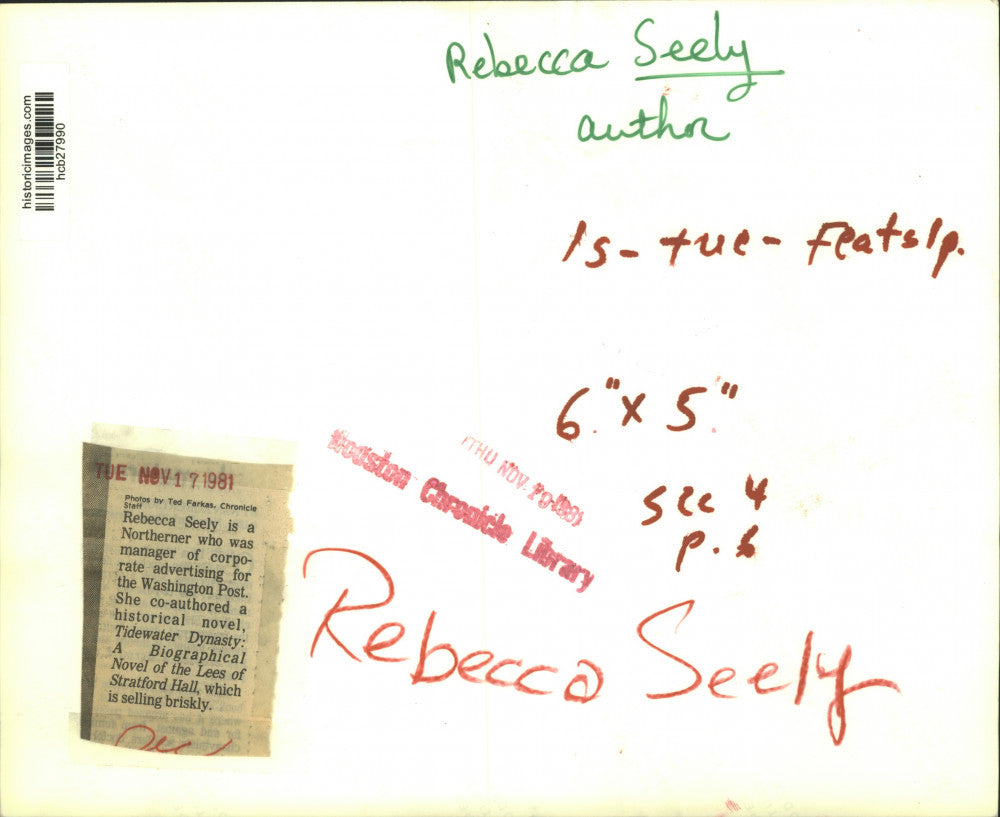 Rebecca Seely
author
historicimages.com
hcb27990
1s - tue - Featslp.
6." x 5."
sec 4
p. 6
THU NOV 19 1981
Houston Chronicle Library
TUE NOV 17 1981
Photos by Ted Farkas, Chronicle
Staff
Rebecca Seely is a
Northerner who was
manager of corpo-
rate advertising for
the Washington Post.
She co-authored a
historical novel,
Tidewater Dynasty:
A Biographical
Novel of the Lees of
Stratford Hall, which
is selling briskly.
Rebecca Seely